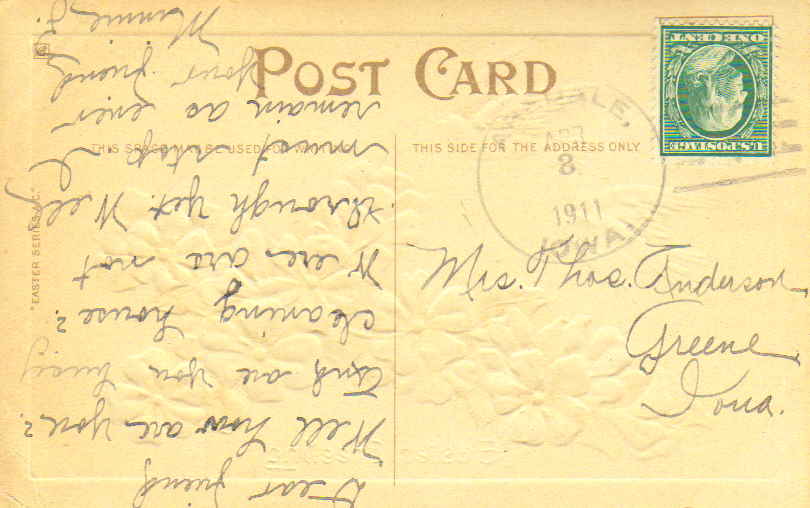 POST CARD
THIS SPACE MAY BE USED FOR
THIS SIDE FOR THE ADDRESS ONLY
"EASTER SERIES
8
1911
IOWA.
U.S.POSTAGE
ONE CENT
Mrs. Thos. Anderson,
Greene
Iowa.
Dear friend
Well how are you?
And are you busy
cleaning house?
We are not
through yet. Well
I must stop
remain as ever
Your friend
Minnie